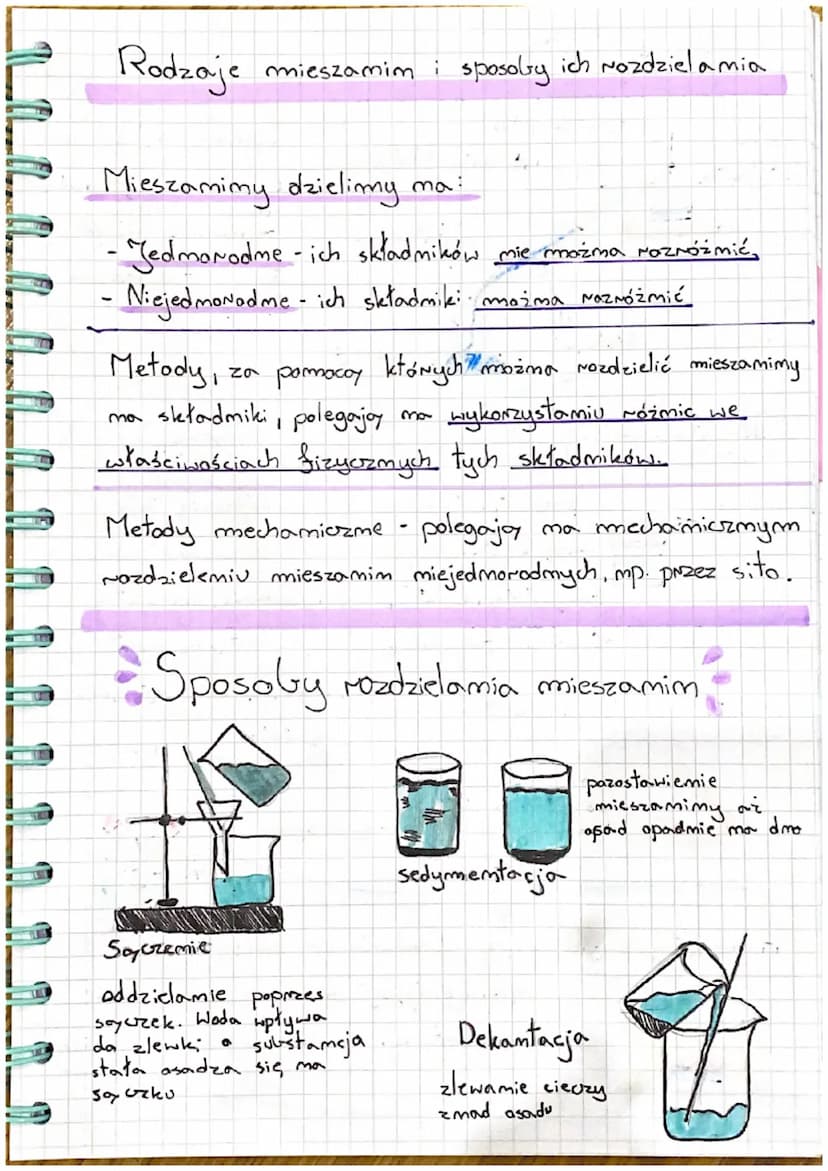 Rodzaje mieszanin i sposoby ich rozdzielania
Mieszaniny dzielimy na:
- Jednorodne - ich składników nie można rozróżnić,
- Niejednorodne - ich składniki można rozróżnić
Metody, za pomocą których można rozdzielić mieszaniny
na składniki, polegają na wykorzystaniu różnic we
właściwościach fizycznych tych składników.
Metody mechaniczne - polegają na mechanicznym
rozdzieleniu mieszanin niejednorodnych, np. przez sito.
Sposoby rozdzielania mieszanin
pozostawienie
mieszaniny aż
osad opadnie na dno
sedymentacja
Sączenie
oddzielanie poprzes
sączek. Woda wpływa
do zlewki a substancja
stała osadza się na
sączku
Dekantacja
zlewanie cieczy
znad osadu